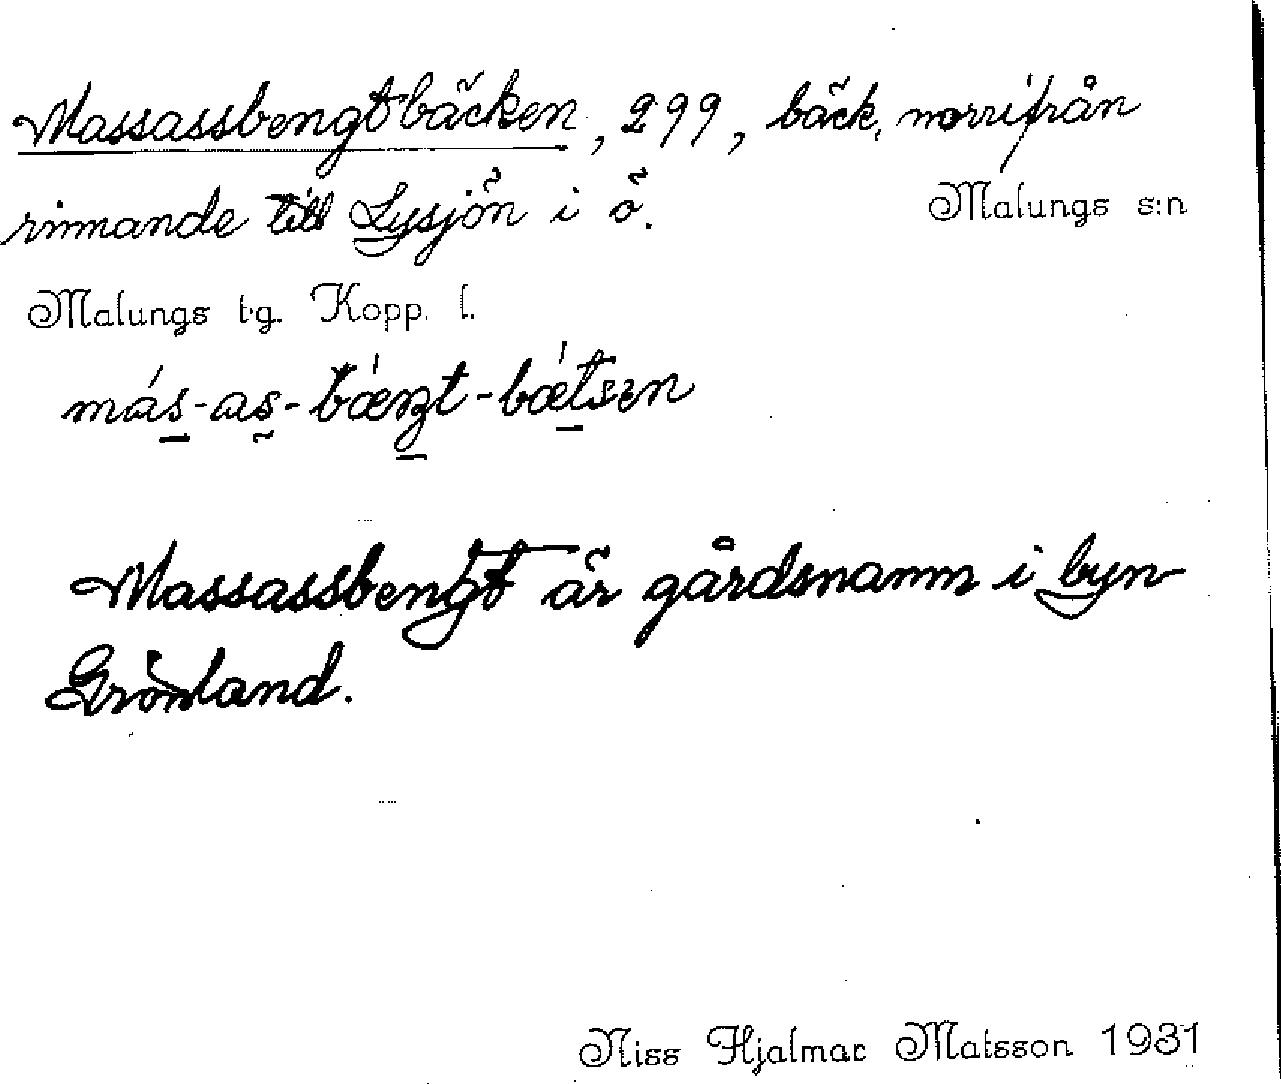 Massassbengtbäcken, 299, bäck, norrifrån
rinnande till Lysjön i ö.
Malungs s:n
Malungs tg. Kopp. l.
Massassbengt är gårdsnamn i byn
Grönland.
Niss Hjalmar Matsson 1931